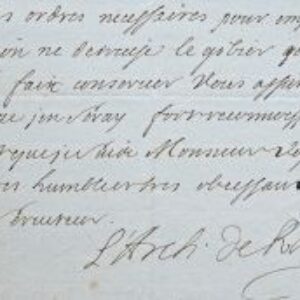 s ordres necessaires pour emp
on ne detruise le gibier q
fait conserver Vous assur
que jen seray fort reconnoiss
et que je suis Monsieur Vo
res humble et tres obeissan
L'Arch. de R